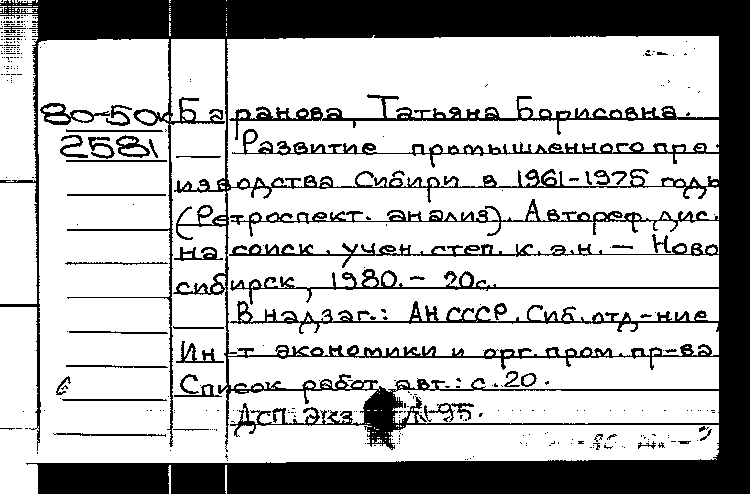 80-50к Баранова, Татьяна Борисовна.
2581 Развитие промышленного про-
изводства Сибири в 1961-1975 годы
(Ретроспект. анализ). Автореф. дис.
на соиск. учен. степ. к. э. н. — Ново
сибирск, 1980. — 20с.
В надзаг.: АН СССР. Сиб. отд-ние,
Ин-т экономики и орг. пром. пр-ва
Список работ авт.: с. 20.
Дсп. Экз. №95.